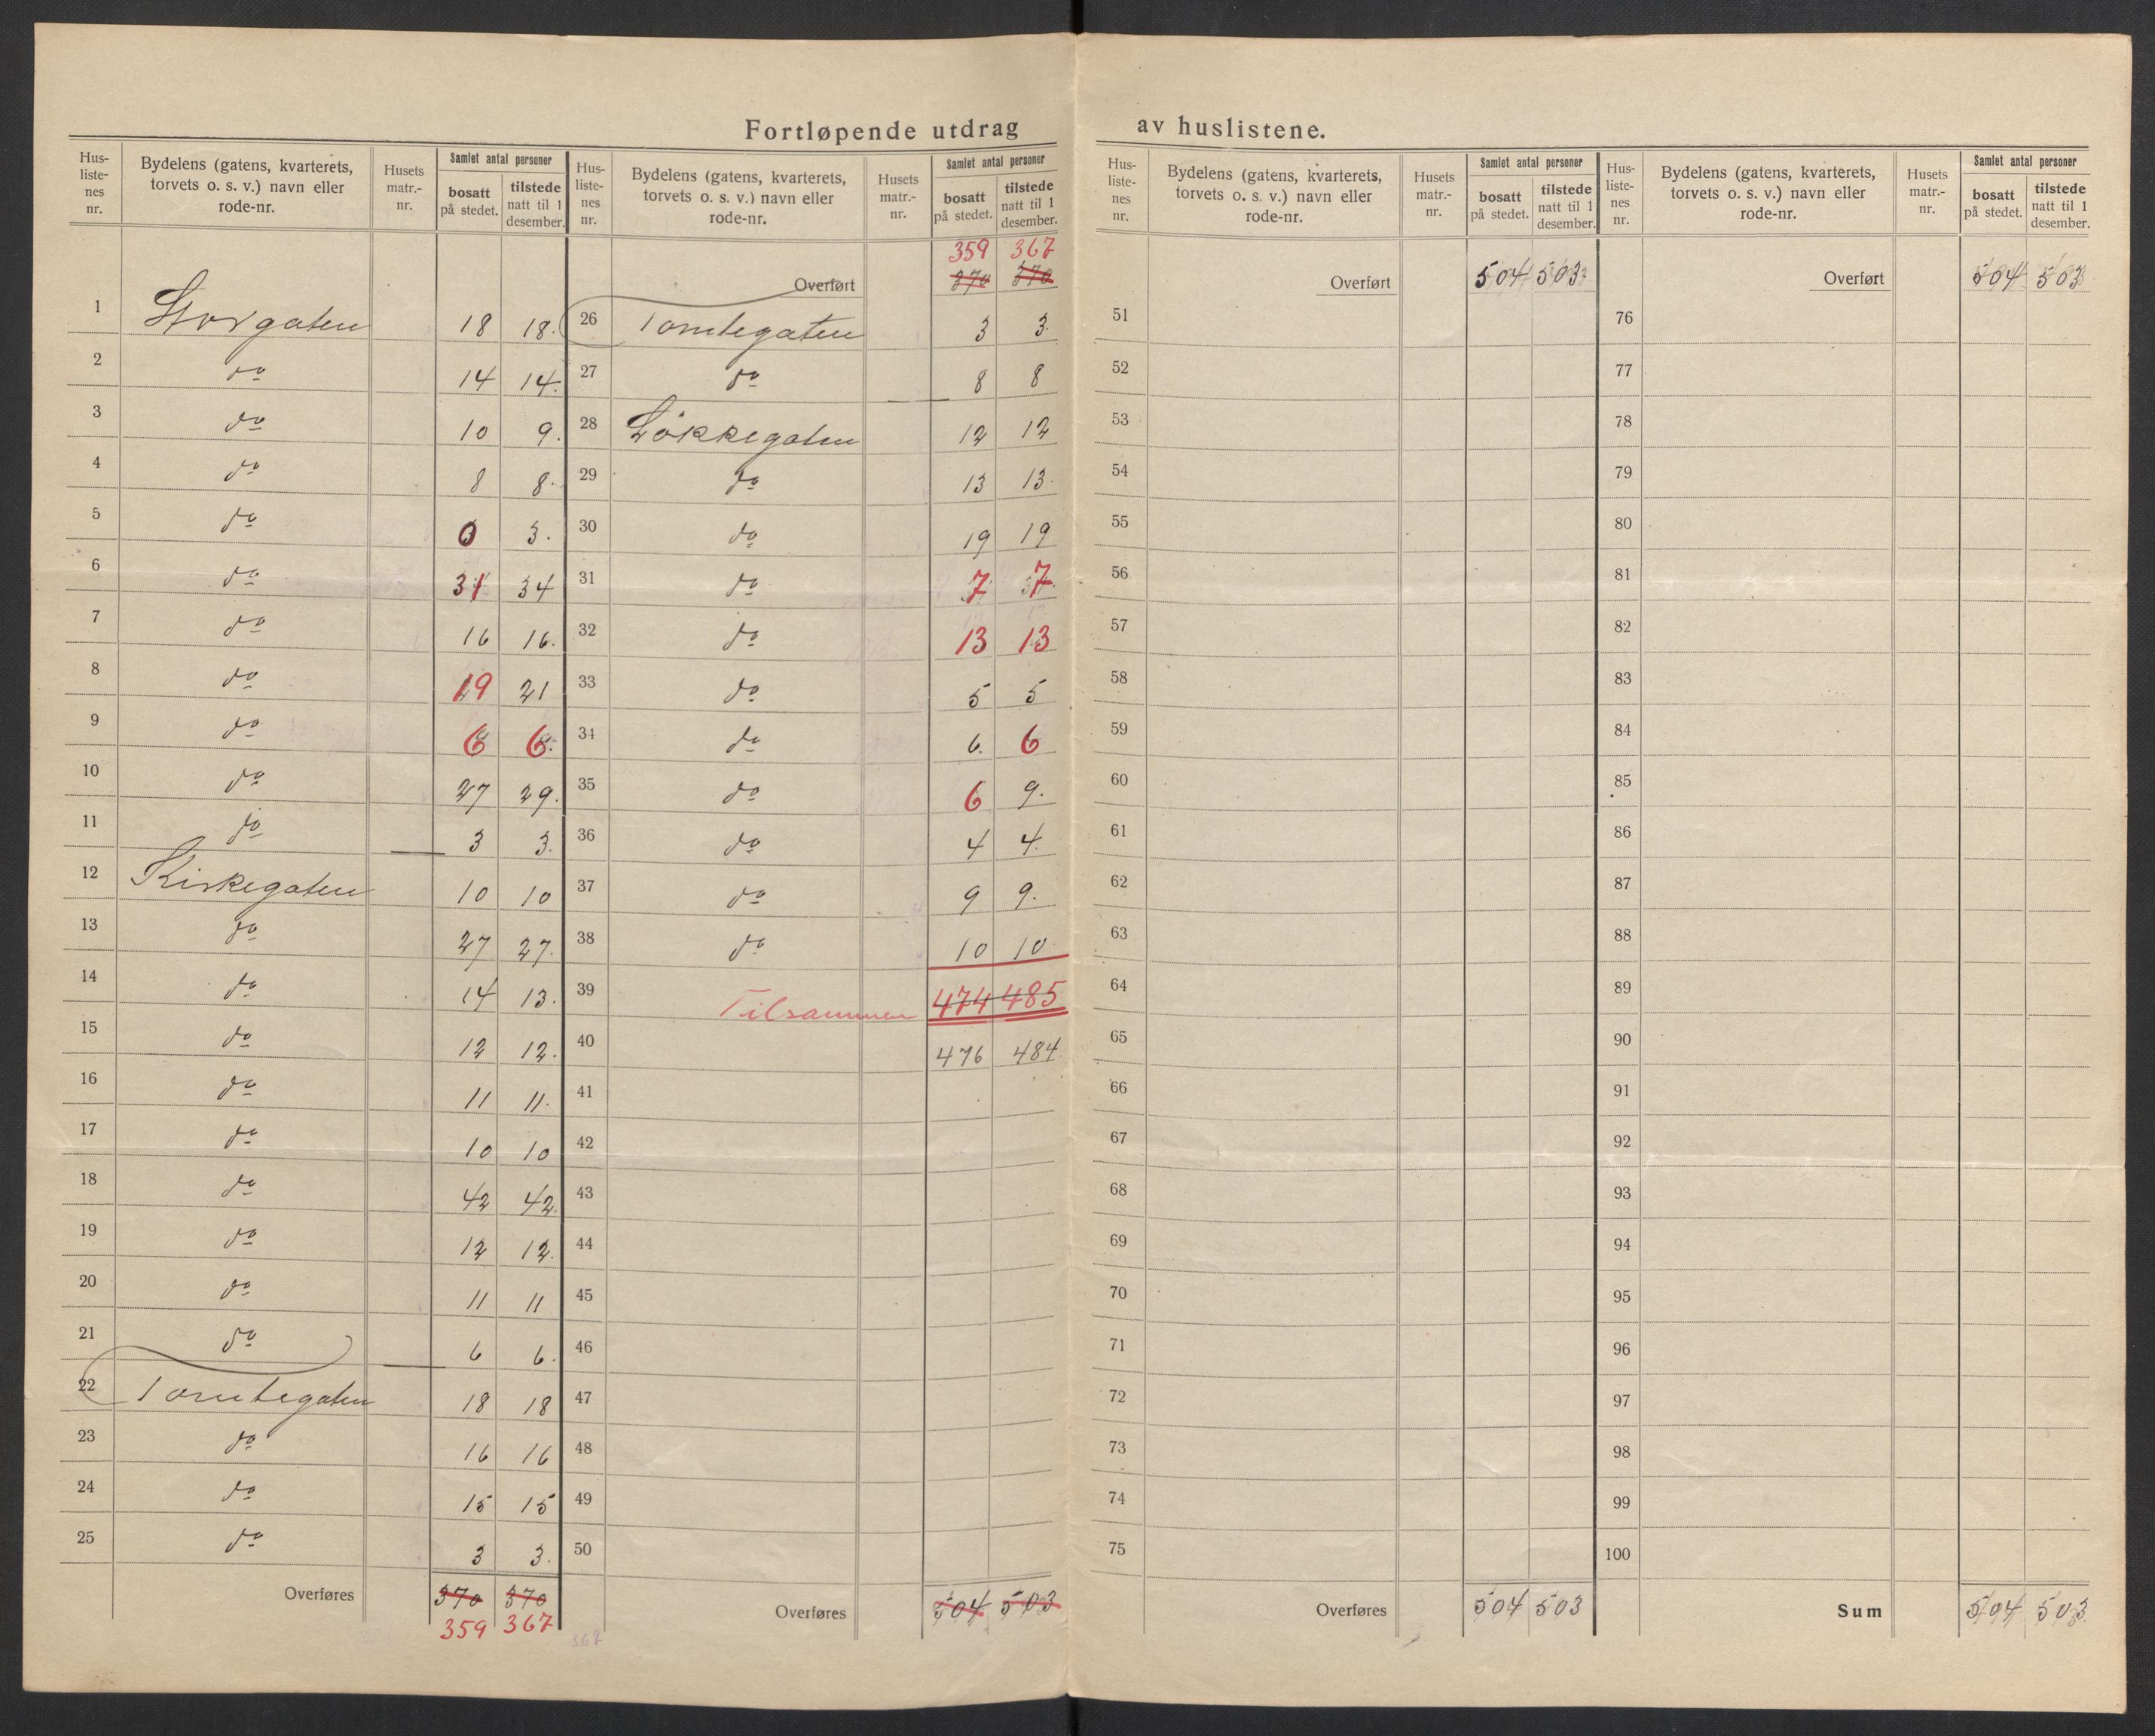 Fortløpende utdrag av huslistene.
Hus-listenes nr. | Bydelens (gatens, kvarterets, torvets o. s. v.) navn eller rode-nr. | Husets matr.-nr. | Samlet antal personer: bosatt på stedet. | tilstede natt til 1 desember.
1 Storgaten 18 18.
2 do 14 14.
3 do 10 9.
4 do 8 8.
5 do 0 3.
6 do 31 34
7 do 16 16.
8 do 19 21
9 do 6 6.
10 do 27 29.
11 do 3 3.
12 Kirkegaten 10 10
13 do 27 27.
14 do 14 13.
15 do 12 12.
16 do 11 11.
17 do 10 10
18 do 42 42.
19 do 12 12.
20 do 11 11
21 do 6 6.
22 Tomtegaten 18 18
23 do 16 16
24 do 15 15
25 do 3 3.
Overføres 370 370
359 367
367
Hus-listenes nr. | Bydelens (gatens, kvarterets, torvets o. s. v.) navn eller rode-nr. | Husets matr.-nr. | Samlet antal personer: bosatt på stedet. | tilstede natt til 1 desember.
359 367
Overført 370 370
26 Tomtegaten 3 3.
27 do 8 8
28 Løkkegaten 12 12
29 do 13 13.
30 do 19 19
31 do 7 7.
32 do 13 13
33 do 5 5
34 do 6. 6
35 do 6 9.
36 do 4 4.
37 do 9 9.
38 do 10 10
39 Tilsammen 474 485
40 476 484
41
42
43
44
45
46
47
48
49
50
Overføres 504 503
Hus-listenes nr. | Bydelens (gatens, kvarterets, torvets o. s. v.) navn eller rode-nr. | Husets matr.-nr. | Samlet antal personer: bosatt på stedet. | tilstede natt til 1 desember.
Overført 504 503
51
52
53
54
55
56
57
58
59
60
61
62
63
64
65
66
67
68
69
70
71
72
73
74
75
Overføres 504 503
Hus-listenes nr. | Bydelens (gatens, kvarterets, torvets o. s. v.) navn eller rode-nr. | Husets matr.-nr. | Samlet antal personer: bosatt på stedet. | tilstede natt til 1 desember.
Overført 504 503
76
77
78
79
80
81
82
83
84
85
86
87
88
89
90
91
92
93
94
95
96
97
98
99
100
Sum 504 503